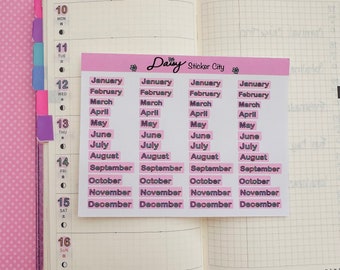 10
MON
11
TUE
12
WED
13
THU
14
FRI
15
SAT
16
SUN
Daisy Sticker City
January January January January
February February February February
March March March March
April April April April
May May May May
June June June June
July July July July
August August August August
September September September September
October October October October
November November November November
December December December December